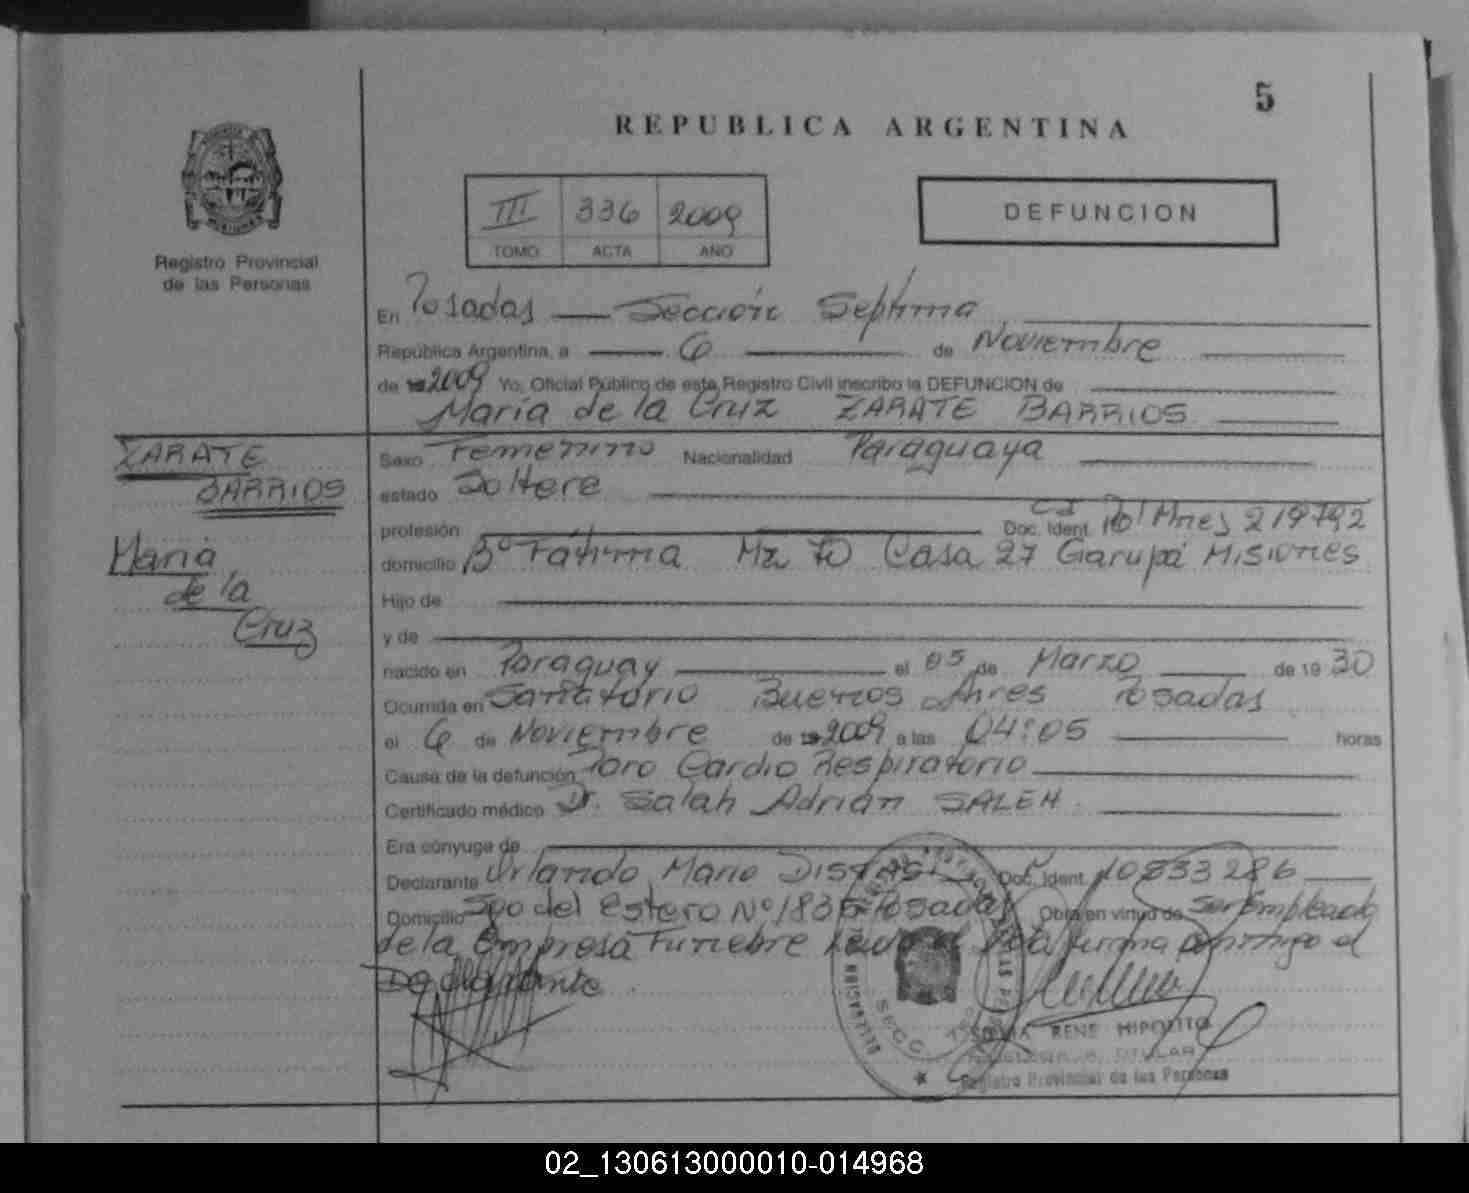 5
REPUBLICA ARGENTINA
III 336 2009
TOMO ACTA AÑO
DEFUNCION
Registro Provincial
de las Personas
En Posadas — Sección Septima
República Argentina, a 6 de Noviembre
de 2009 Yo, Oficial Público de este Registro Civil inscribo la DEFUNCION de
María de la Cruz ZARATE BARRIOS
ZARATE
BARRIOS
María
de la
Cruz
Sexo Femenino Nacionalidad Paraguaya
estado Soltera
profesión Doc. Ident. CI Pol Mnes 219792
domicilio Bº Fátima Mz Casa 27 Garupá Misiones
Hijo de
y de
nacido en Paraguay el 05 de Marzo de 1930
Ocurrida en Sanatorio Buenos Aires Posadas
el 6 de Noviembre de 2009 a las 04:05 horas
Causa de la defunción Paro Cardio Respiratorio
Certificado médico Dr. Salah Adrián SALEH
Era cónyuge de
Declarante Orlando Mario Doc. Ident. 10833286
Domicilio Sgo del Estero Nº 1835 Posadas Obra en virtud de Ser Empleado
de la Empresa Funebre firma conmigo el
Declarante
SECC.
RENE HIPOLITO
TITULAR
Registro Provincial de las Personas
02_130613000010-014968